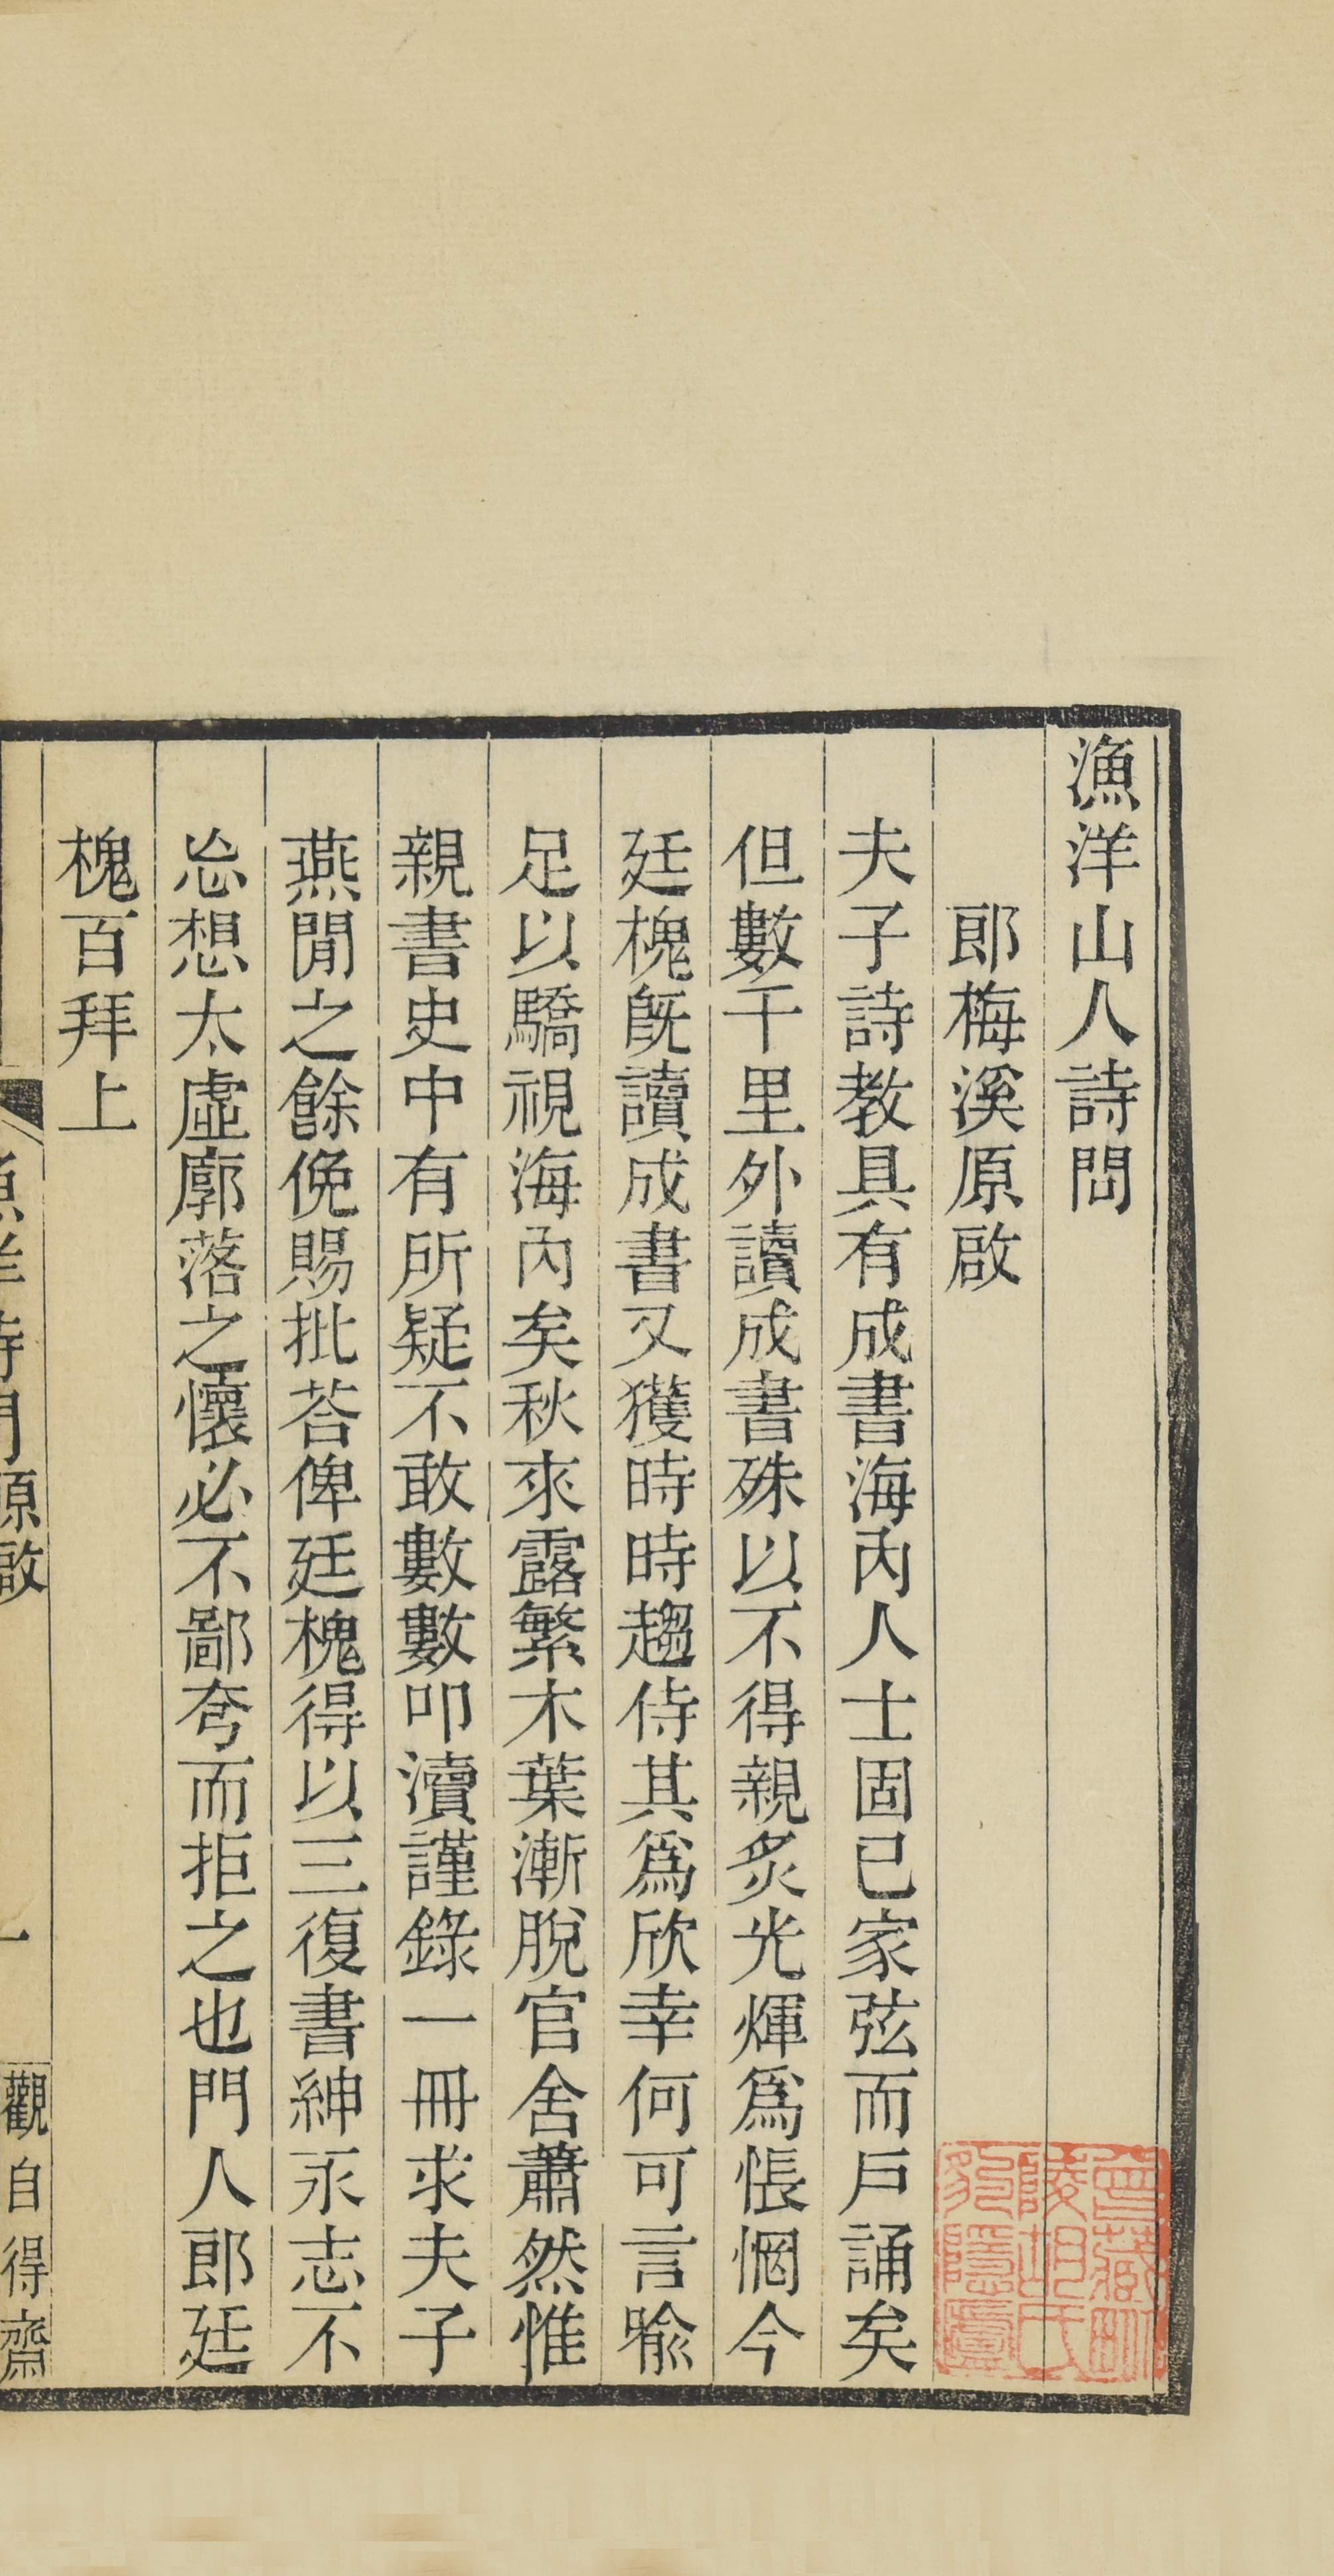 漁洋山人詩問
郎梅溪原啟
夫子詩教具有成書海內人士固已家弦而戶誦矣
但數千里外讀成書殊以不得親炙光煇爲悵惘今
廷槐旣讀成書又獲時時趨侍其爲欣幸何可言喩
足以驕視海內矣秋來露繁木葉漸脫官舍蕭然惟
親書史中有所疑不敢數數叩瀆謹錄一冊求夫子
燕閒之餘俛賜批荅俾廷槐得以三復書紳永志不
忩想太虛廓落之懷必不鄙夸而拒之也門人郎廷
槐百拜上
漁洋詩問原啟
一
觀自得齋